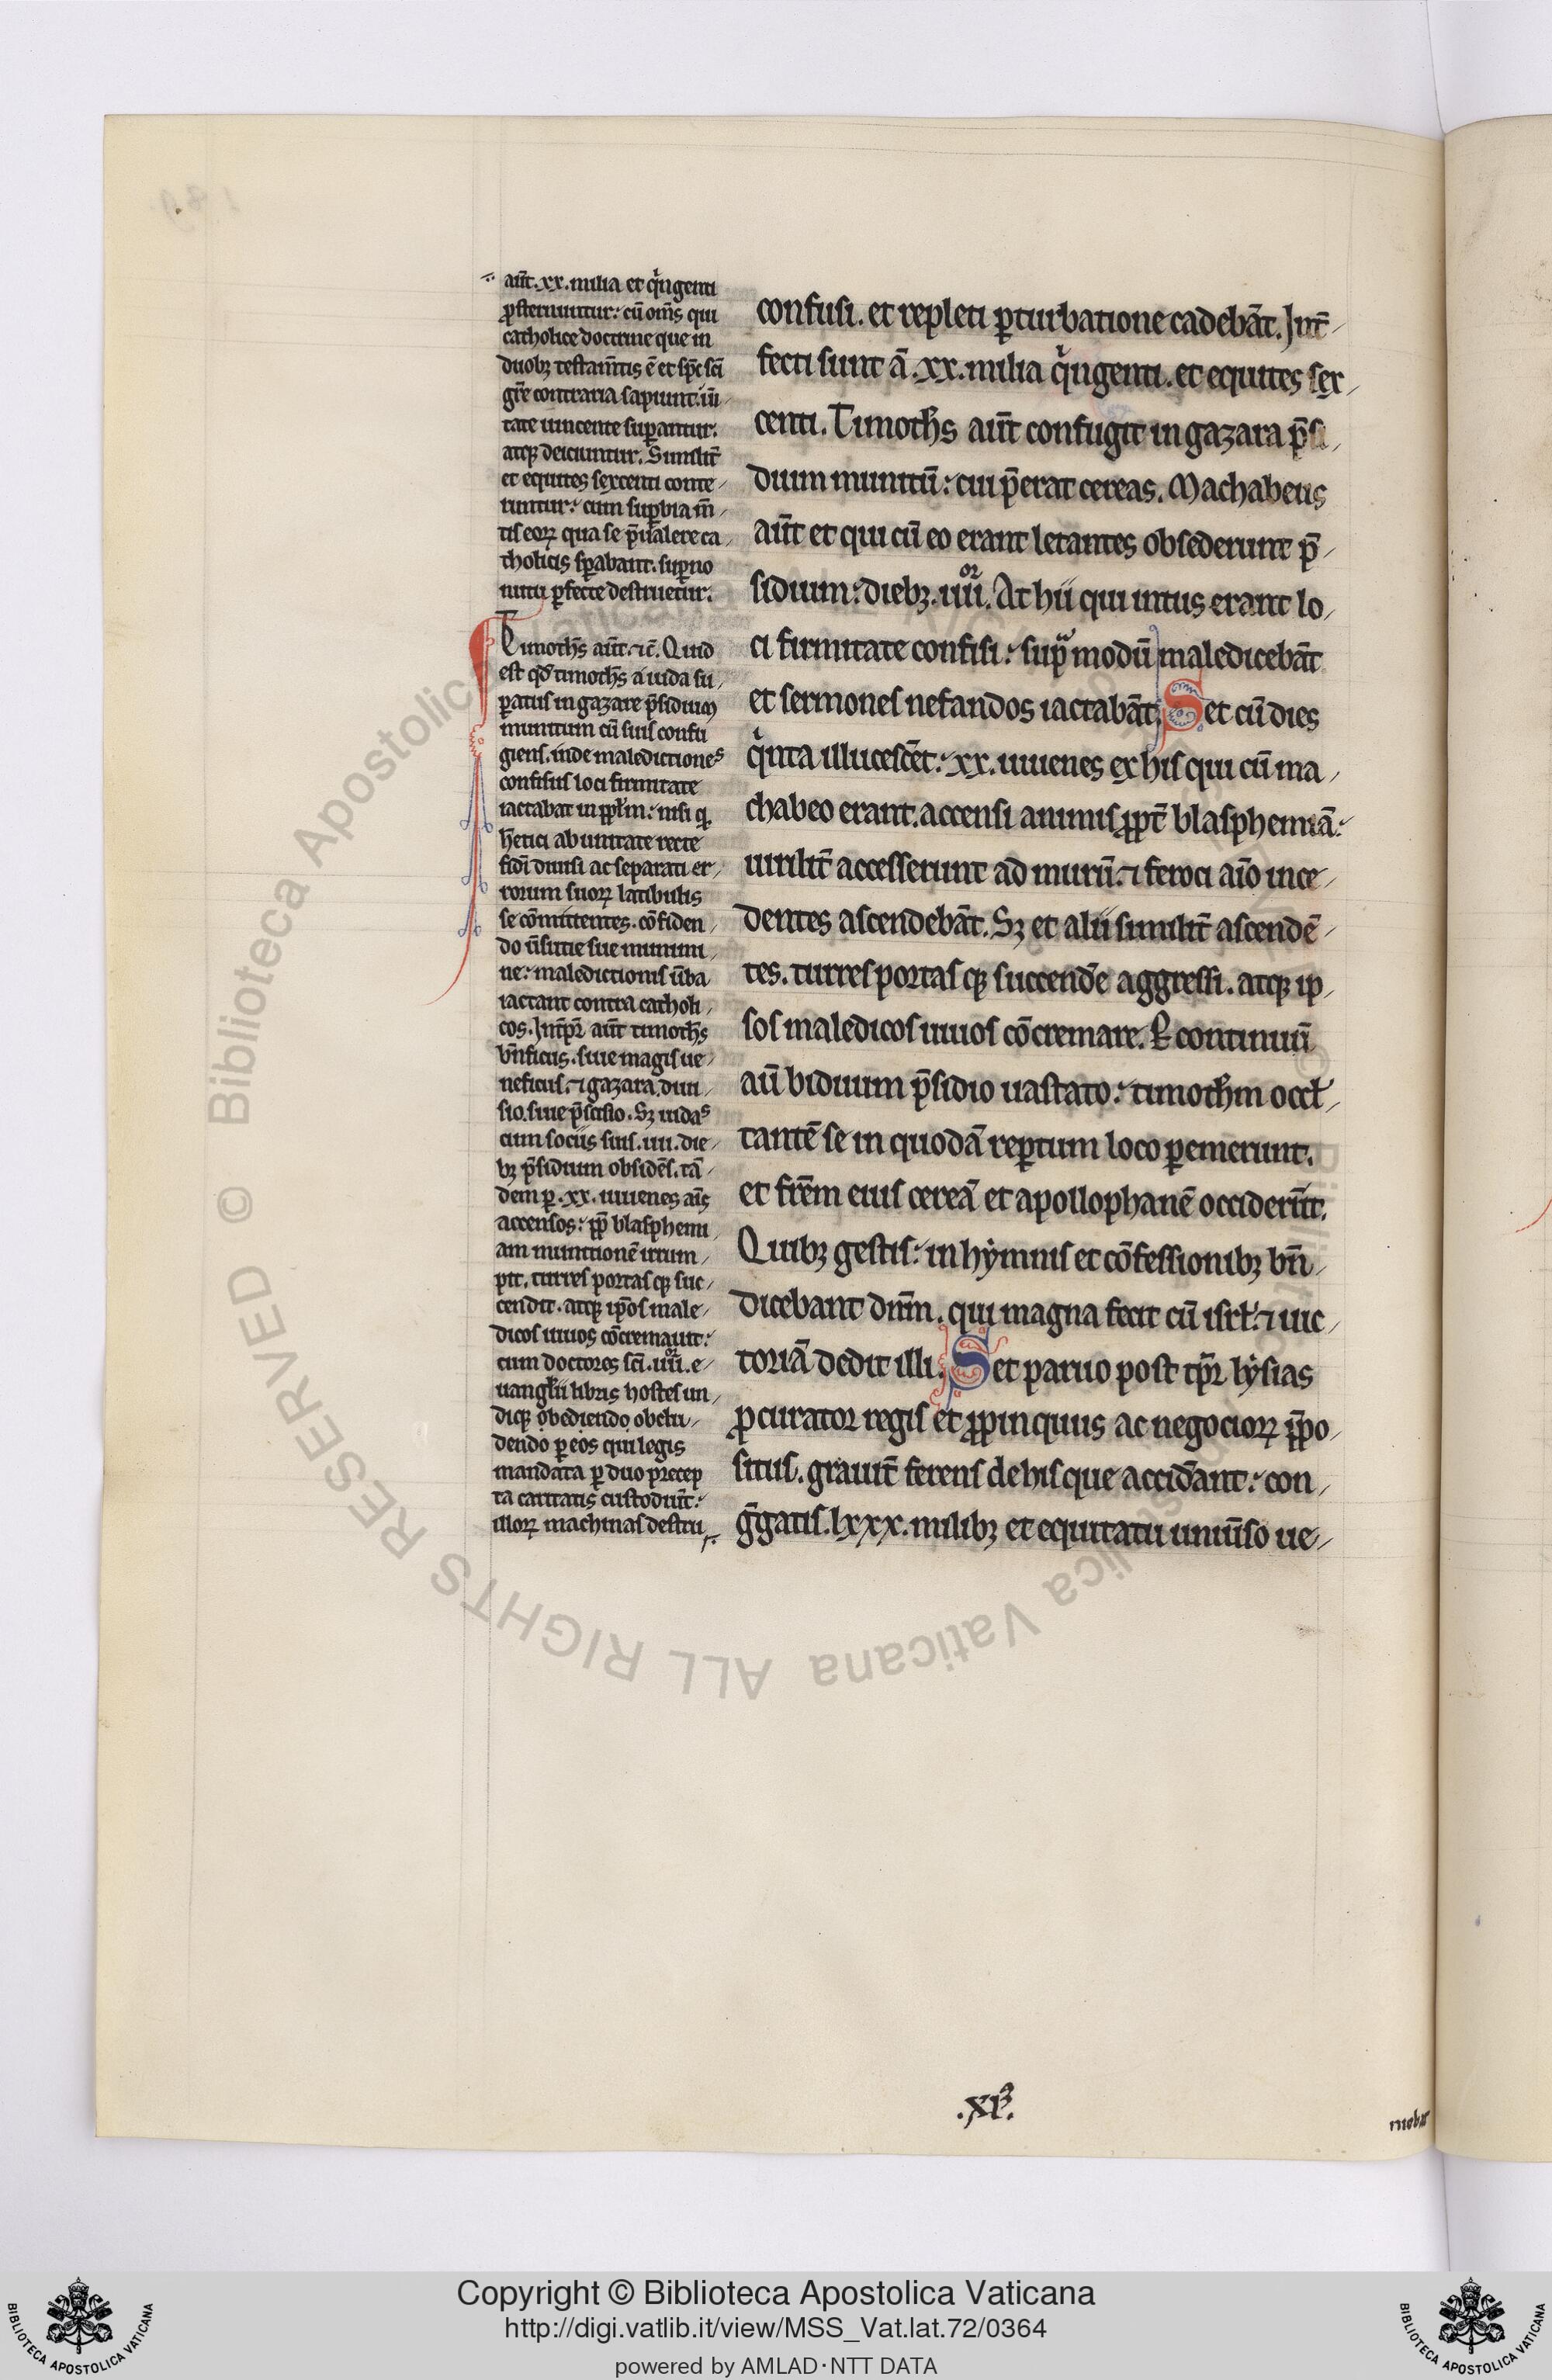 aut̄ .xx. milia et qͥngenti
ꝓsternuntur: cū om̄s qui
catholice doctrine que in
duobꝫ testam̄tis ē et sp̄c sc̄i
gr̄e contraria sapiunt. ūi
tate uincente suꝑantur.
atqꝫ deiciuntur. Similit̄
et equites sexcenti conte
runtur: cum suꝑbia m̄
tis eoꝝ qua se p̄ualere ca
tholicis sꝑabant. suꝑno
nutu ꝑfecte destruetur.
Timoth̄s aut̄. ⁊c̄. Quid
est qd̄ timoth̄s a iuda su
ꝑatus in gazare p̄sidium
munitum cū suis confu
giens. inde maledictiones
confisus loci firmitate
iactabat in ppl̄m: nisi qꝫ
h̄etici ab unitate recte
fidi diuisi ac separati er
rorum suoꝝ latibulis
se cōmittentes. cōfiden
do ūsutie sue munimi
ne: maledictionis ūba
iactant contra catholi
cos. Int̄pr̄ aut̄ timoth̄s
bn̄ficus. siue magis ue
neficus. ⁊ gazara. diui
sio. siue p̄scisio. Sꝫ iudas
cum sociis suis .iiii. die
bꝫ p̄sidium obsidēs. tā
dem ꝑ .xx. iuuenes aīs
accensos: ꝓp̄ blasphemi
am munitionē irrum
pit. turres portasqꝫ suc
cendit. atqꝫ ip̄os male
dicos uiuos cōcremauit:
cum doctores sc̄i .iiiiᵒʳ. e
uangl̄ii libris hostes un
diqꝫ obediendo obclu
dendo ꝑ eos qui legis
mandata ꝑ duo precep
ta caritatis custodiūt:
illoꝝ machinas destru
confusi. et repleti ꝑturbatione cadebāt. Int̄
fecti sunt ā .xx. milia qͥngenti. et equites sex
centi. Timoth̄s aut̄ confugit in gazara p̄si
dium munitū: cui p̄erat cereas. Machabeus
aut̄ et qui cū eo erant letantes obsederunt p̄
sidium: diebꝫ .iiiiᵒʳ. At hii qui intus erant lo
ci firmitate confisi: supͣ modū maledicebāt
et sermones nefandos iactabāt. Set cū dies
qͥnta illucescēt: .xx. iuuenes ex his qui cū ma
chabeo erant. accensi animis ꝓpt̄ blasphemiā:
uirilit̄ accesserunt ad murū. ⁊ feroci aīo ince
dentes ascendebāt. Sꝫ et alii similit̄ ascendē
tes. turres portasqꝫ succend̄e aggressi. atqꝫ ip
sos maledicos uiuos cōcremare. Et continuū
aū biduum p̄sidio uastato: timoth̄m occl̄
tantē se in quodā reꝑtum loco ꝑemerunt.
et fr̄em eius cereā et apollophanē occiderūt.
Quibꝫ gestis: in hẏmnis et cōfessionibꝫ bn̄
dicebant dn̄m. qui magna fecit cū isrl̄. ⁊ uic
toriā dedit illi. Set paruo post tp̄r lẏsias
ꝓcurator regis et ꝓpinquus ac negocioꝝ p̄po
situs. grauit̄ ferens de his que accid̄ant: con
ḡgatis .lxxx. milibꝫ et equitatu uniūso ue